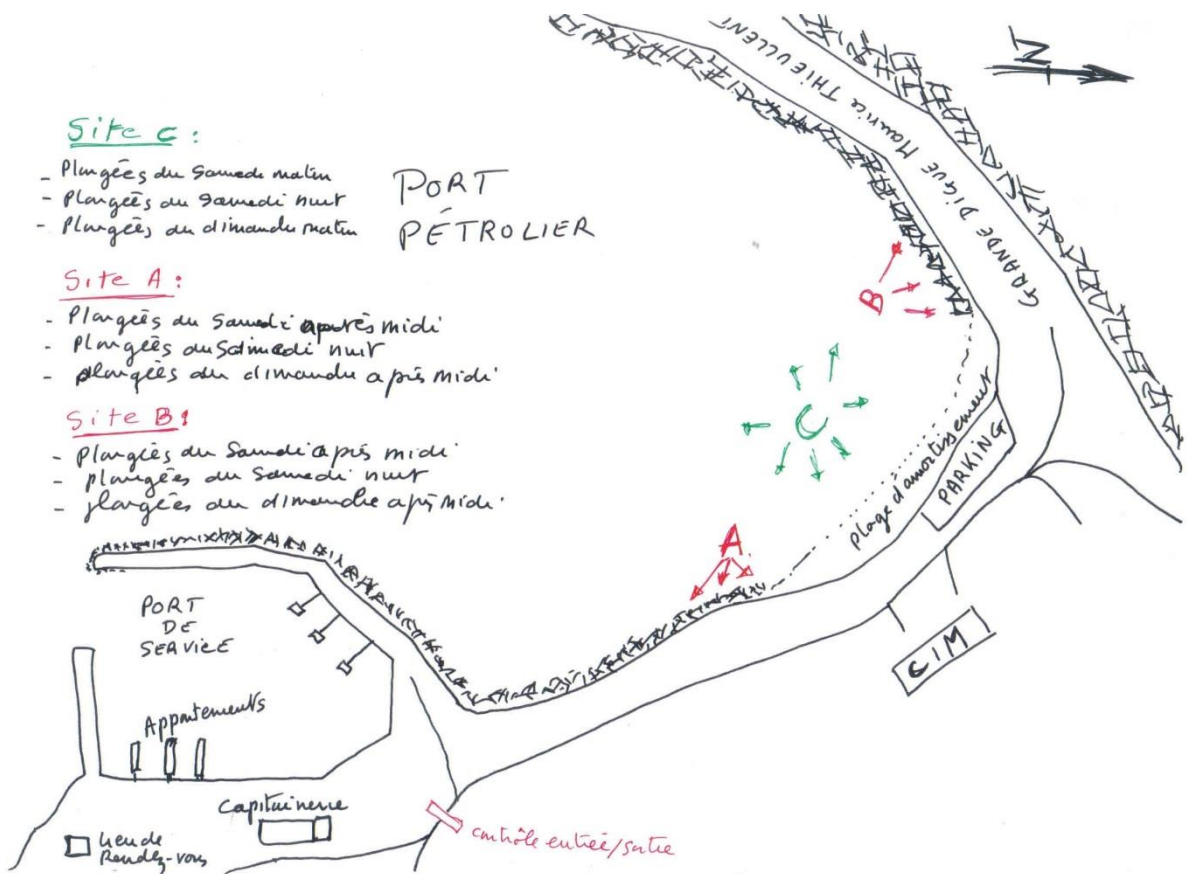 Site C :
- Plongées du Samedi matin
- Plongées du Samedi nuit
- Plongées du dimanche matin
PORT
PÉTROLIER
Site A :
- Plongées du Samedi après midi
- Plongées du Samedi nuit
- plongées du dimanche après midi
Site B :
- Plongées du Samedi après midi
- plongées du Samedi nuit
- plongées du dimanche après midi
N
GRANDE DIGUE Maurice THIEULLENT
B
C
A
plage d'amortissement
PARKING
CIM
PORT
DE
SERVICE
Appontements
Capitainerie
lieu de
Rendez-vous
contrôle entrée/sortie